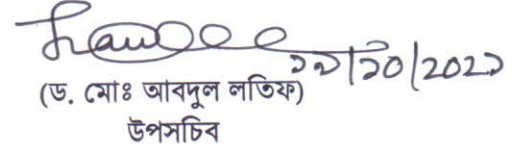 ১৯/১০/২০২১
(ড. মোঃ আবদুল লতিফ)
উপসচিব